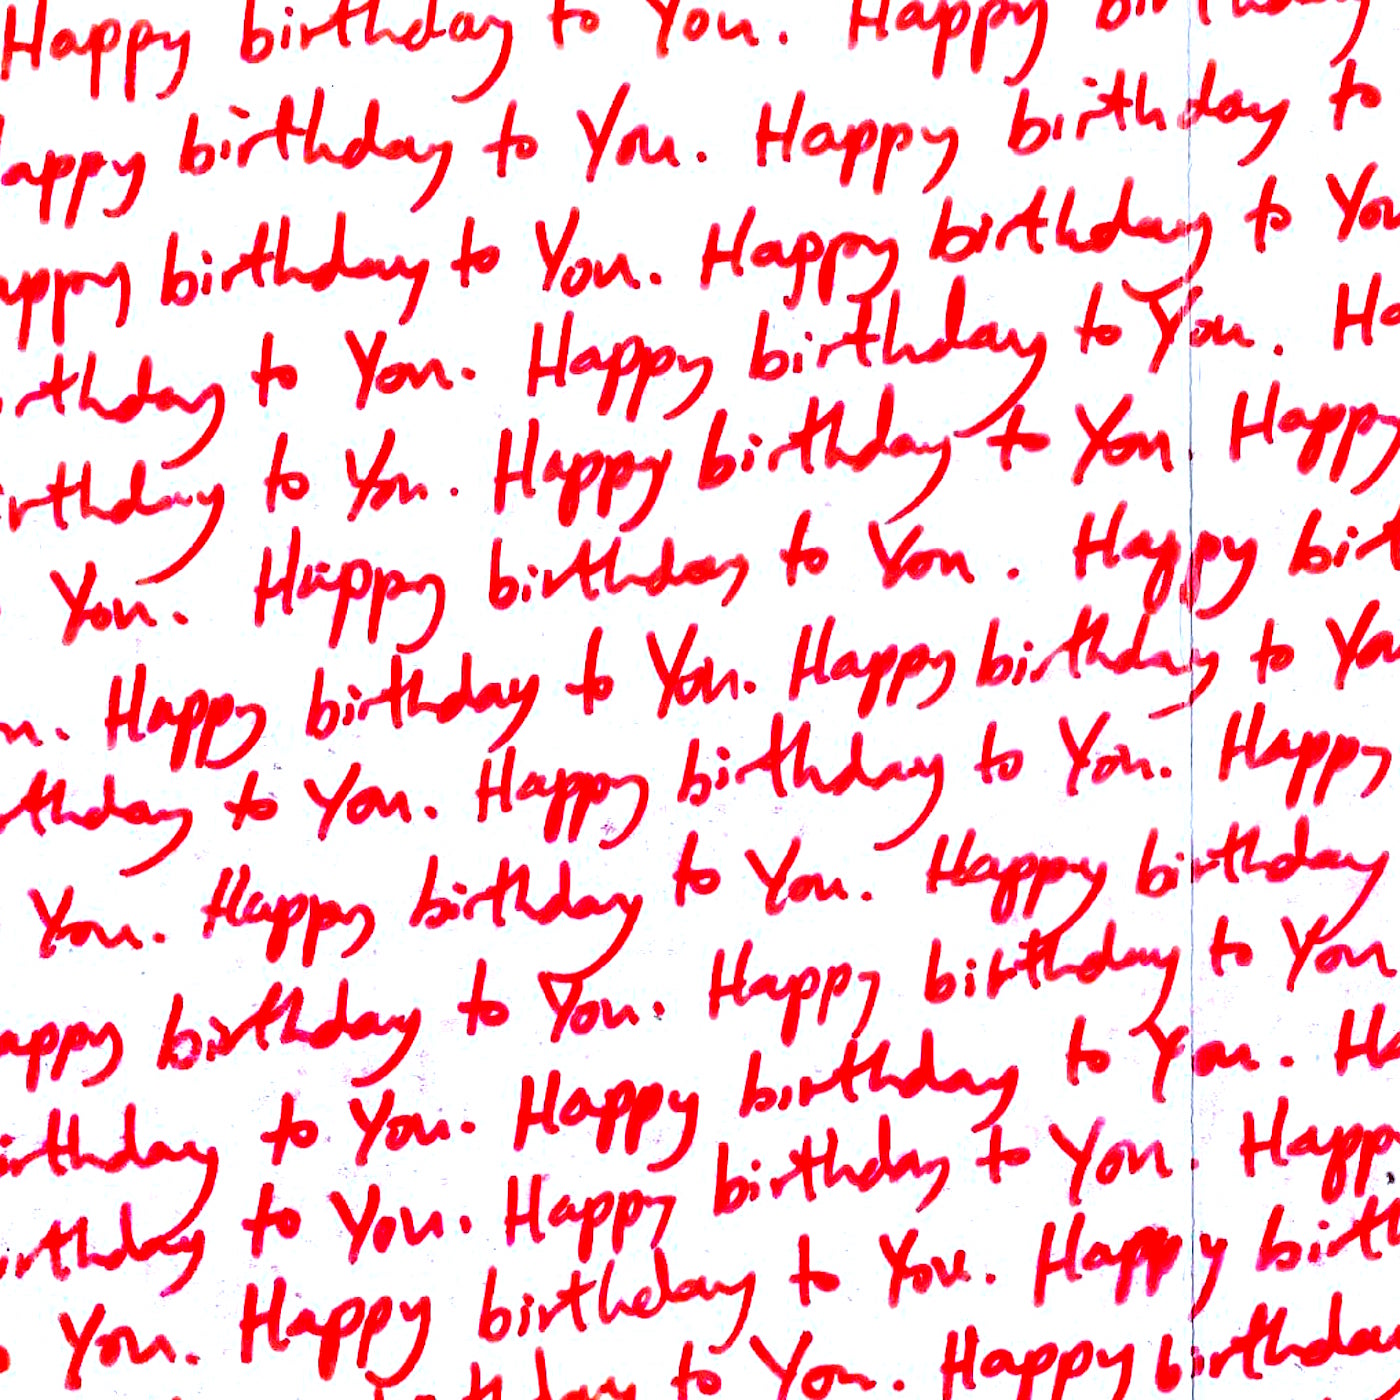 Happy birthday to You. Happy birthday
appy birthday to You. Happy birthday to
appy birthday to You. Happy birthday to You
rthday to You. Happy birthday to You. Ha
irthday to You. Happy birthday to You. Happy
You. Happy birthday to You. Happy birt
u. Happy birthday to You. Happy birthday to You
rthday to You. Happy birthday to You. Happy
You. Happy birthday to You. Happy birthday
appy birthday to You. Happy birthday to You
irthday to You. Happy birthday to You. Ha
irthday to You. Happy birthday to You. Happy
You. Happy birthday to You. Happy birth
birthday to You. Happy birthday